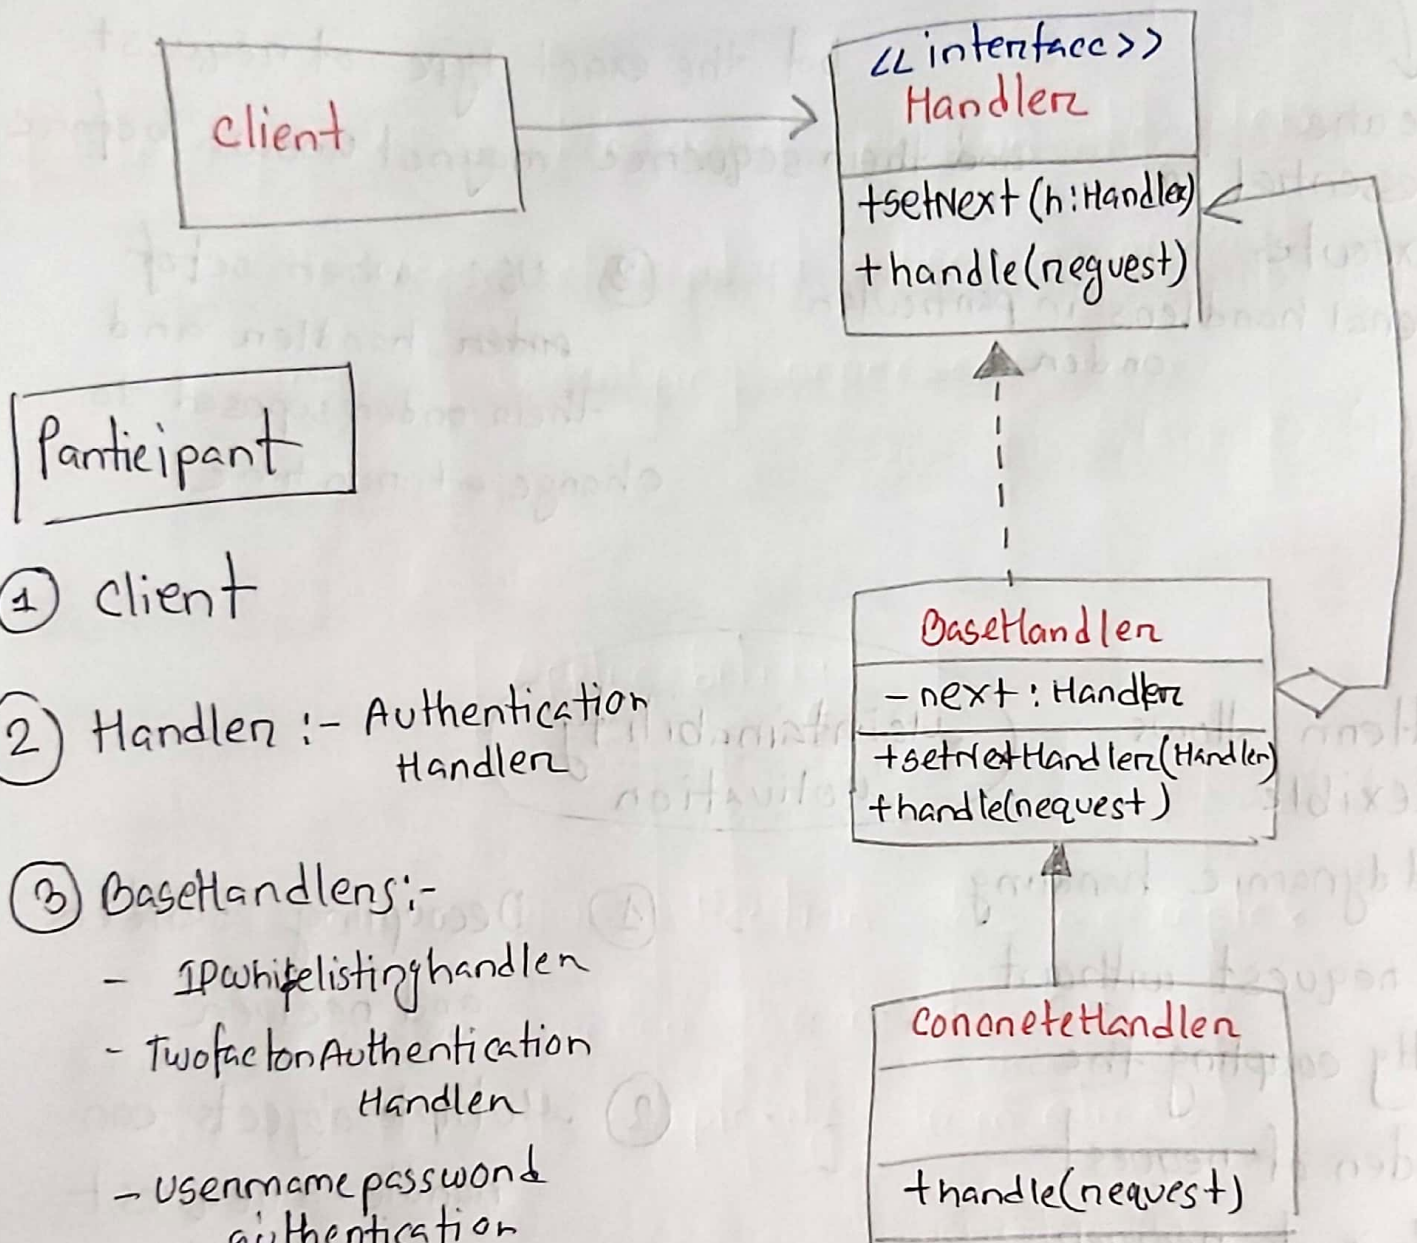 Client
<<interface>>
Handler
+setNext(h:Handler)
+handle(request)
Participant
① Client
② Handler :- Authentication
Handler
③ BaseHandlers:-
- IPwhitelistinghandler
- TwofactorAuthentication
Handler
- Usernamepassword
authentication
BaseHandler
- next : Handler
+setNextHandler(Handler)
+handle(request)
ConcreteHandler
+handle(request)